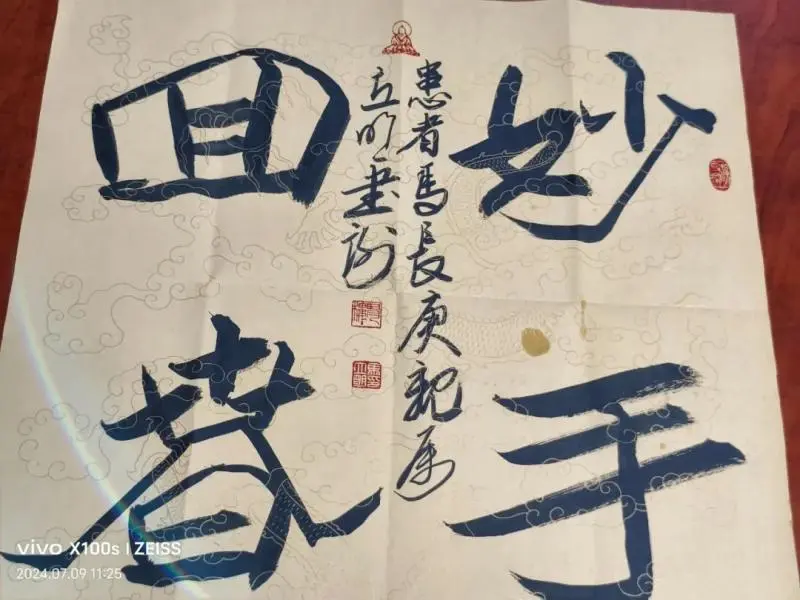 妙手
回春
患者馬長庚親属
立明 谢
vivo X100s | ZEISS
2024.07.09 11:25